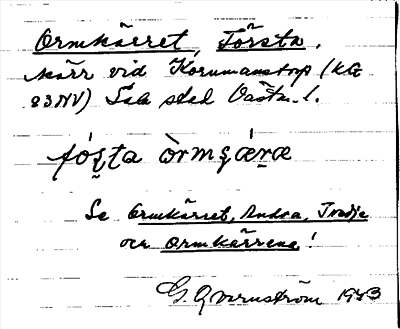 Ormkärret, Första.
kärr vid Korumanstorp (KG
83NV) Sala stad Västm. l.
fó̀ṣta òrmʂǽræ
Se Ormkärret, Andra, Tredje
och Ormkärrene!
G. Qvarnström 1943